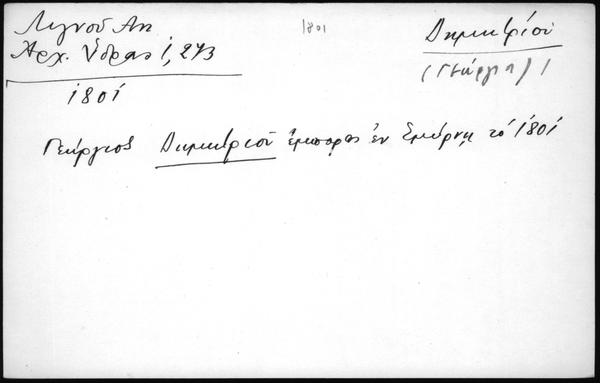 Λιγνού Αντ
Αρχ. Ύδρας 1, 273
1801
1801
Δημητρίου
(Γεώργιος) 1
Γεώργιος Δημητρίου έμπορος εν Σμύρνη το 1801